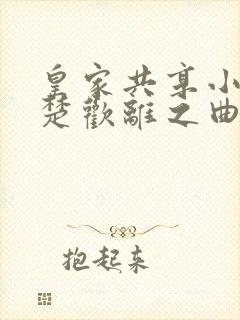 皇家共享小
楚歡離之曲
抱起来